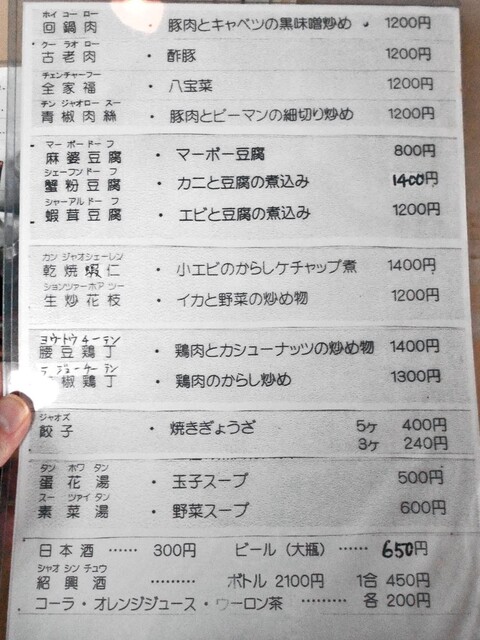 ホイ コー ロー
回鍋肉 ・ 豚肉とキャベツの黒味噌炒め 1200円
クー ラオ ロー
古老肉 ・ 酢豚 1200円
チェンチャーフー
全家福 ・ 八宝菜 1200円
チン ジャオロー スー
青椒肉絲 ・ 豚肉とピーマンの細切り炒め 1200円
マー ボー ドー フ
麻婆豆腐 ・ マーボー豆腐 800円
シェーフンドー フ
蟹粉豆腐 ・ カニと豆腐の煮込み 1400円
シャーアルドー フ
蝦茸豆腐 ・ エビと豆腐の煮込み 1200円
カン ジャオシェーレン
乾焼蝦仁 ・ 小エビのからしケチャップ煮 1400円
ションツァーホア ツー
生炒花枝 ・ イカと野菜の炒め物 1200円
ヨウトウチーテン
腰豆鶏丁 ・ 鶏肉とカシューナッツの炒め物 1400円
ジューチーテン
椒鶏丁 ・ 鶏肉のからし炒め 1300円
ジャオズ
餃子 ・ 焼きぎょうざ 5ヶ 400円
3ヶ 240円
タン ホワ タン
蛋花湯 ・ 玉子スープ 500円
スー ツァイ タン
素菜湯 ・ 野菜スープ 600円
日本酒 …… 300円 ビール（大瓶）…… 650円
シャオ シン チュウ
紹興酒 ……… ボトル 2100円 1合 450円
コーラ・オレンジジュース・ウーロン茶 ……… 各 200円